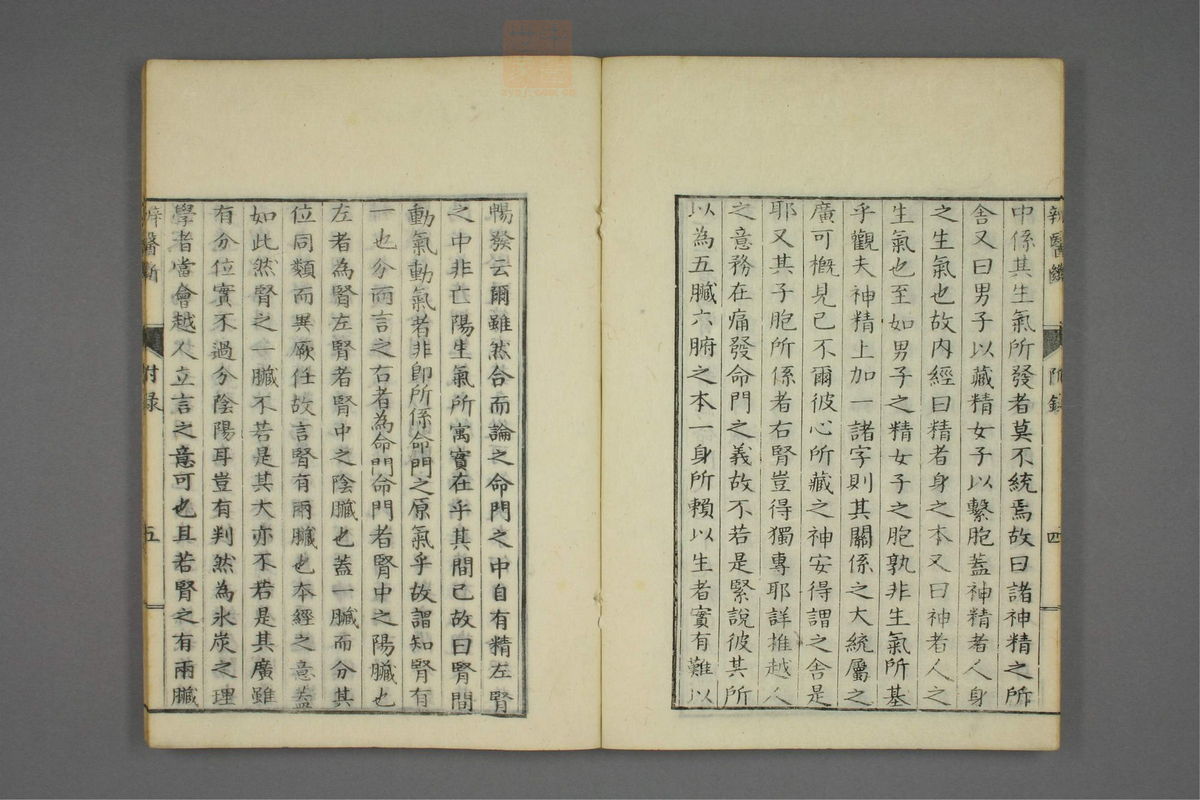 中係其生氣所發者莫不統焉故曰諸神精之所
舍又曰男子以藏精女子以繫胞蓋神精者人身
之生氣也故内經曰精者身之本又曰神者人之
生氣也至如男子之精女子之胞孰非生氣所基
乎觀夫神精上加一諸字則其關係之大統屬之
廣可概見已不爾彼心所藏之神安得謂之舍是
耶又其子胞所係者右腎豈得獨專耶詳推越人
之意務在痛發命門之義故不若是緊說彼其所
以為五臟六腑之本一身所賴以生者實有難以
附錄
四
暢發云爾雖然合而論之命門之中自有精左腎
之中非亡陽生氣所寓實在乎其間已故曰腎間
動氣動氣者非卽所係命門之原氣乎故謂知腎有
一也分而言之右者為命門命門者腎中之陽臟也
左者為腎左腎者腎中之陰臟也蓋一臟而分其
位同類而異厥任故言腎有兩臟也本經之意蓋
如此然腎之一臟不若是其大亦不若是其廣雖
有分位實不過分陰陽耳豈有判然為氷炭之理
學者當會越人立言之意可也且若腎之有兩臟
辨醫斷
附録
五